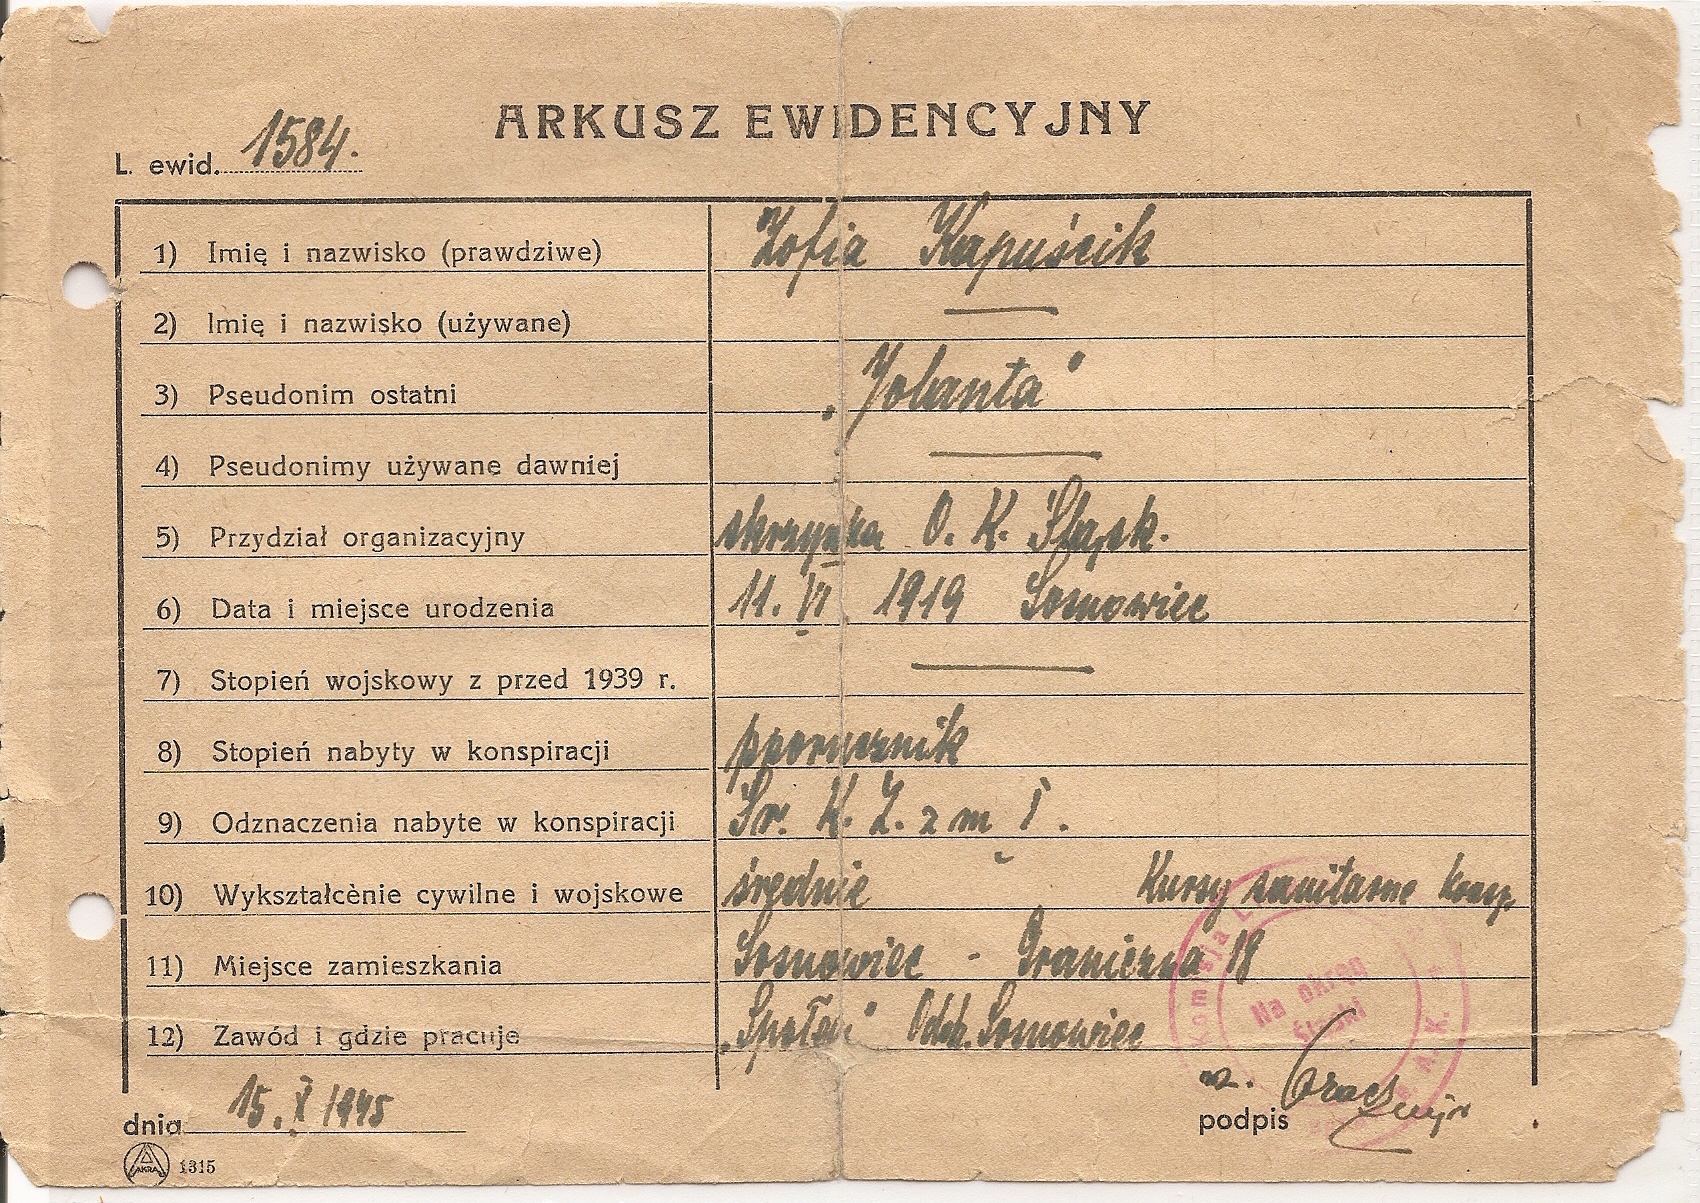 ARKUSZ EWIDENCYJNY
L. ewid. 1584.
1) Imię i nazwisko (prawdziwe) Zofia Kapuścik
2) Imię i nazwisko (używane) —
3) Pseudonim ostatni „Jolanta"
4) Pseudonimy używane dawniej —
5) Przydział organizacyjny skrzynka O. K. Śląsk.
6) Data i miejsce urodzenia 11. VI 1919 Sosnowiec
7) Stopień wojskowy z przed 1939 r. —
8) Stopień nabyty w konspiracji pporucznik
9) Odznaczenia nabyte w konspiracji Sr. K. Z. z m I.
10) Wykształcènie cywilne i wojskowe średnie Kursy sanitarne konsp.
11) Miejsce zamieszkania Sosnowiec - Graniczna 18
12) Zawód i gdzie pracuje „Społem" Oddz. Sosnowiec
Komisja L
Na okręg
Śląski
A. K.
dnia 15. X 1945
podpis
AKRA 1315